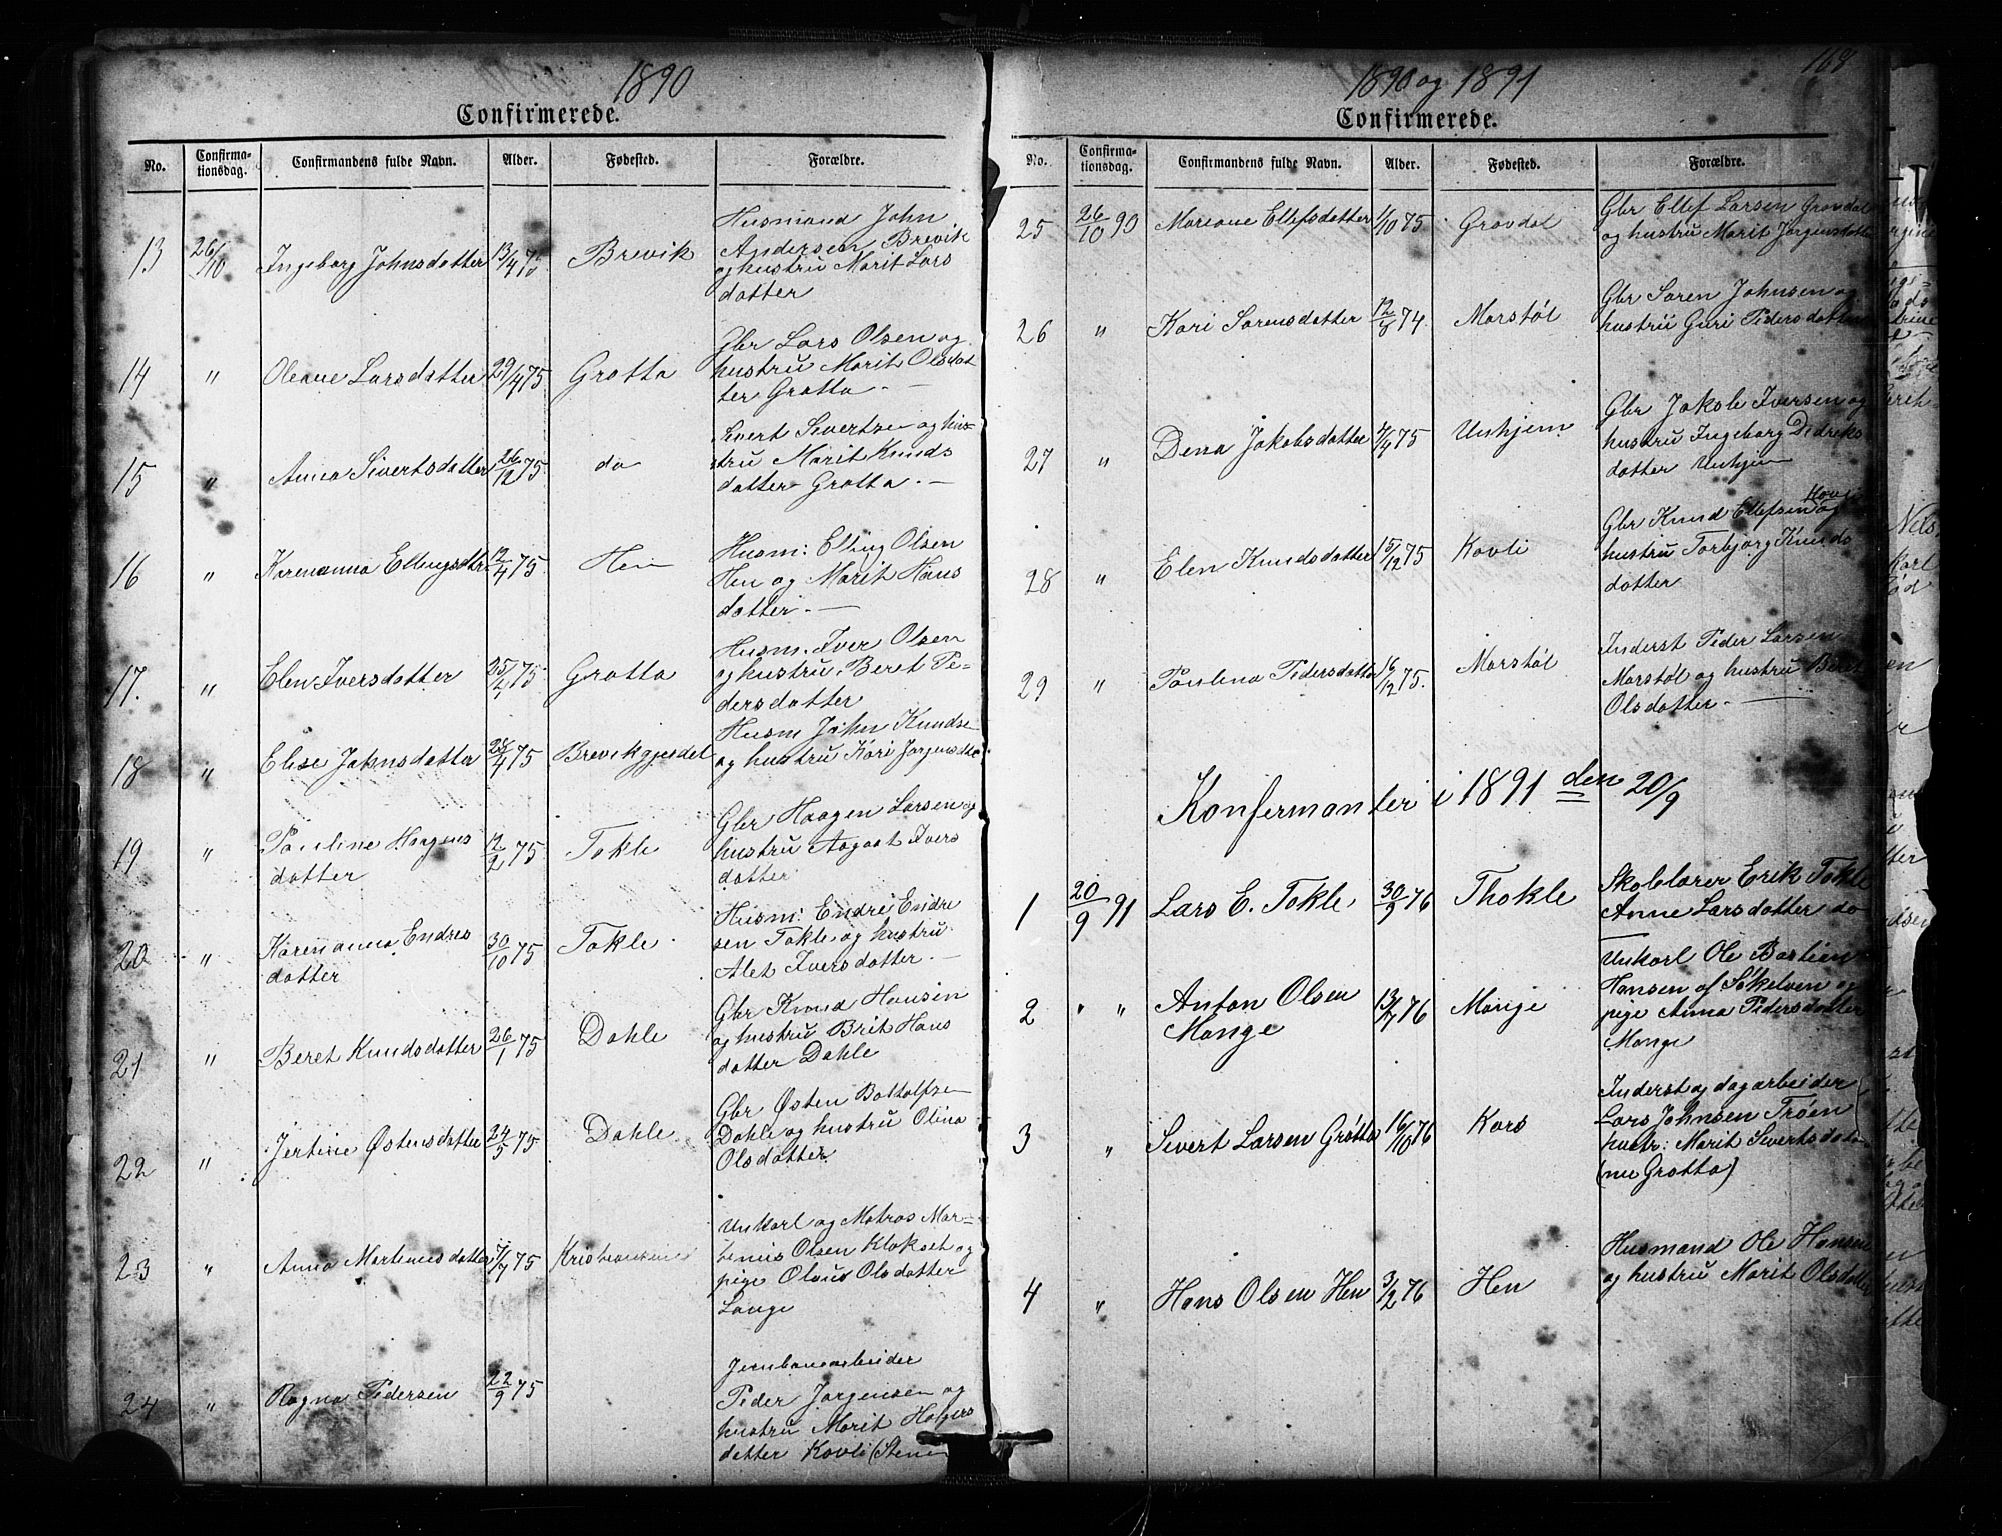 1890
Confirmerede.
No. Confirma-tionsdag. Confirmandens fulde Navn. Alder. Fødested. Forældre.
13 26/10 Ingeborg Johnsdatter 13/4 75 Brevik
Husmand John
Andersen Brevik
og hustru Marit Lars
datter
14 " Oleane Larsdatter 29/4 75 Grøtta
Gbr Lars Olsen og
hustru Marit Olsdat
ter Grøtta. —
15 " Anna Sivertsdatter 26/12 75 do
Sivert Sivertsen og hus-
tru Marit Knuds
datter Grøtta. —
16 " Karenanna Ellingsdtr 12/4 75 Hen
Husm: Elling Olsen
Hen og Marit Hans
datter. —
17. " Elen Iversdatter 25/4 75 Grøtta
Husm. Iver Olsen
og hustru Beret Pe-
dersdatter
18 " Elise Johnsdatter 28/4 75 Brevikgjerdet
Husm John Knudse
og hustru Kari Jørgensdtr
19 " Pauline Haagens
datter 12/2 75 Tokle
Gbr Haagen Larsen og
hustru Aagaat Ivers
datter
20 " Karenanna Endres
datter 30/10 75 Tokle.
Husm: Endre Endre
sen Tokle og hustru
Alet Iversdatter. —
21 " Beret Knudsdatter 26/1 75 Dahle
Gbr Knud Hansen
og hustru Brit Hans
datter Dahle
22 " Jertine Østensdatter 24/5 75 Dahle
Gbr Østen Botolfsen
Dahle og hustru Olina
Olsdatter
23 " Anna Martinusdatter 7/7 75 Kristiansund
Unkarl og Matros Mar-
tenus Olsen Klokset og
pige Olaus Olsdatter
Lange
24 " Ragna Pedersen 22/9 75
Jernbanearbeider
Peder Jørgensen og
hustru Marit Holgers
datter Kovli (Stene
1890 og 1891
169
Confirmerede.
No. Confirma-tionsdag. Confirmandens fulde Navn. Alder. Fødested. Forældre.
25 26/10 90 Mariane Ellefsdatter 1/10 75 Grøvdal
Gbr Ellef Larsen Grøvdal
og hustru Marit Jørgensdatter
26 " Kari Sørensdatter 12/8 74. Marstøl
Gbr Søren Johnsen og
hustru Guri Pedersdatter
27 " Dena Jakobsdatter 4/7 75 Unhjem
Gbr Jakob Iversen og
hustru Ingeborg Didriks
datter Unhjem
28 " Elen Knudsdatter 15/12 75 Kovli
Gbr Knud Ellefsen Kovli og
hustru Torbjørg Knuds
datter
29 " Paulina Pedersdatter 16/12 75. Marstøl
Inderst Peder Larsen
Marstøl og hustru Beret
Olsdatter. —
Konfermanter i 1891 den 20/9
1 20/9 91 Lars E. Tokle. 30/9 76 Thokle
Skolelærer Erik Tokle
Anne Larsdatter do
2 " " Anton Olsen
Mange 13/7 76 Mange
Unkarl Ole Bastian
Hansen af Søkelven og
pige Anna Pedersdatter
Mange
3 " Sivert Larsen Grøtta 16/10 76 Kors
Inderst og dagarbeider
Lars Johnsen Trøen
hustr: Marit Sivertsdatter
(nu Grøtta)
4 " Hans Olsen Hen 3/2 76 Hen
Husmand Ole Hansen
og hustru Marit Olsdatter